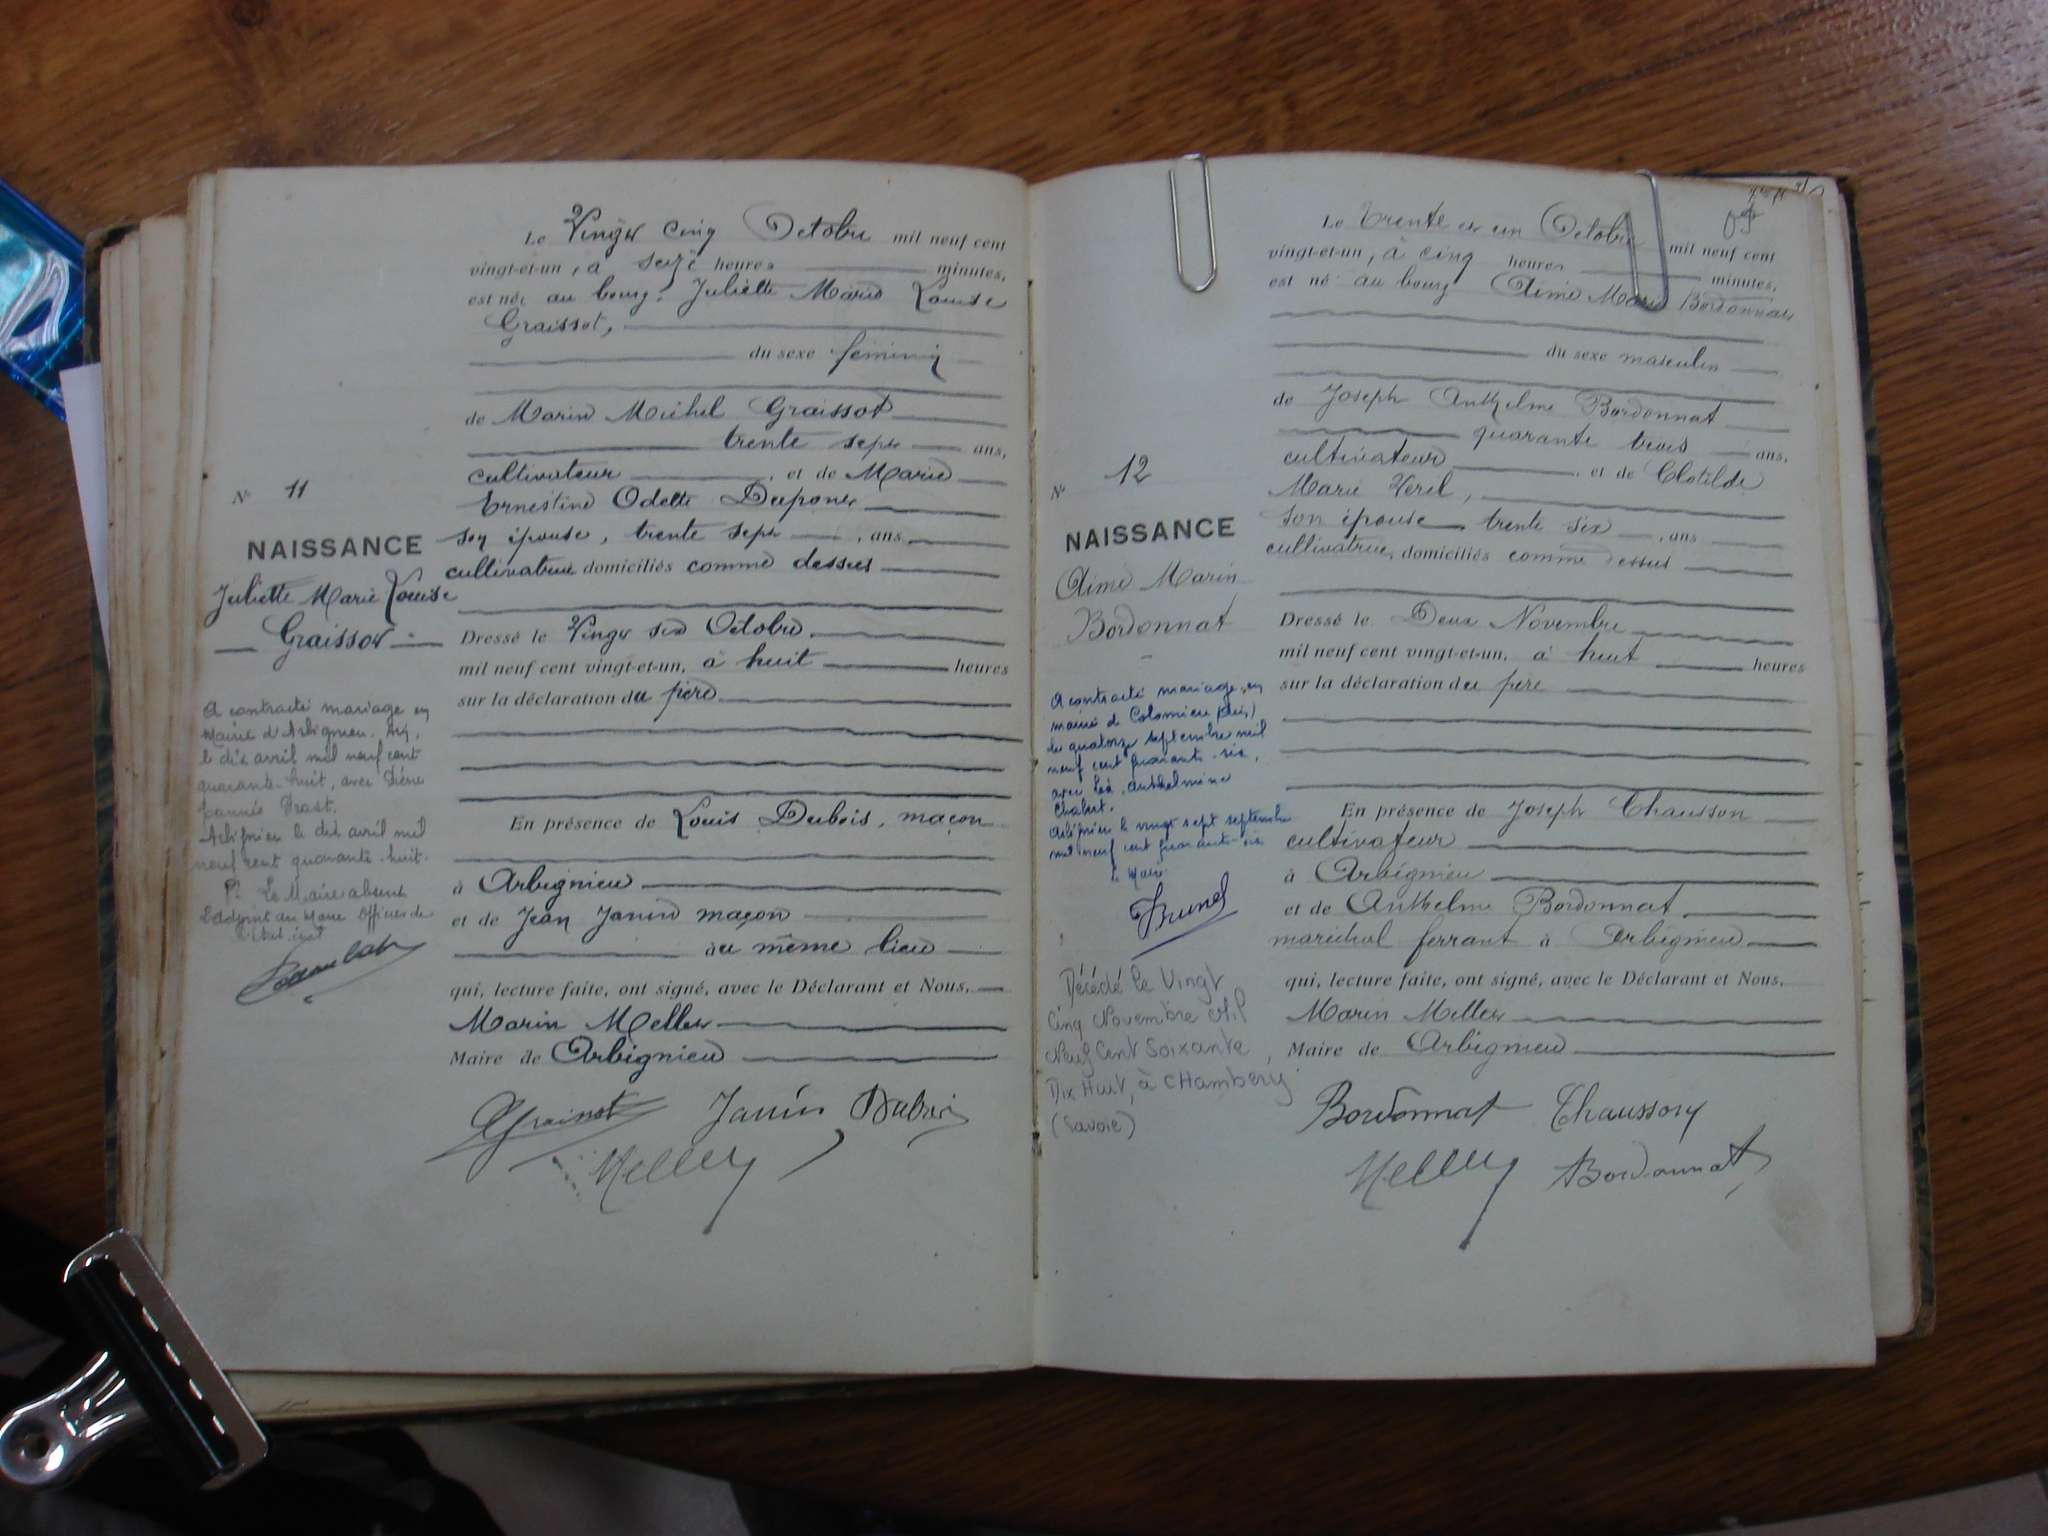 Le Vingt cinq Octobre mil neuf cent
vingt-et-un, à seize heures minutes,
est née au bourg, Juliette Marie Louise
Graissot,
du sexe féminin
de Marin Michel Graissot
trente sept ans,
cultivateur, et de Marie
Ernestine Odette Dupont
son épouse, trente sept, ans,
cultivatrice domiciliés comme dessus
Dressé le Vingt six Octobre
mil neuf cent vingt-et-un, à huit heures
sur la déclaration du père
En présence de Louis Dubois, maçon
à Arbignieu
et de Jean Janin maçon
au même lieu
qui, lecture faite, ont signé, avec le Déclarant et Nous,
Marin Mellet
Maire de Arbignieu
Graissot Janin Dubois
Mellet
N° 11
NAISSANCE
Juliette Marie Louise
Graissot
A contracté mariage en
Mairie d'Arbignieu. Ain,
le dix avril mil neuf cent
quarante-huit, avec Pierre
Prost.
Arbignieu le dix avril mil
neuf cent quarante-huit.
Pr Le Maire absent
L'adjoint au Maire Officier de
l'état civil
Le Trente et un Octobre mil neuf cent
vingt-et-un, à cinq heures minutes,
est né au bourg Aimé Marin Bordonnat
du sexe masculin
de Joseph Anthelme Bordonnat
quarante trois ans,
cultivateur, et de Clotilde
Marie Veril,
son épouse trente six, ans
cultivatrice, domiciliés comme dessus
Dressé le Deux Novembre
mil neuf cent vingt-et-un, à huit heures
sur la déclaration du père
En présence de Joseph Chausson
cultivateur
à Arbignieu
et de Anthelme Bordonnat
maréchal ferrant à Arbignieu
qui, lecture faite, ont signé, avec le Déclarant et Nous,
Marin Mellet
Maire de Arbignieu
Bordonnat Chausson
Mellet Bordonnat
N° 12
NAISSANCE
Aimé Marin
Bordonnat
A contracté mariage, en
mairie de Colomieu (Ain)
le quatorze septembre mil
neuf cent quarante-six,
avec Léa, Anthelmine
Chabert.
Arbignieu le vingt sept septembre
mil neuf cent quarante-six
le Maire
Brunet
Décédé le Vingt
Cinq Novembre Mil
Neuf Cent Soixante
Dix Huit, à CHambery
(Savoie)